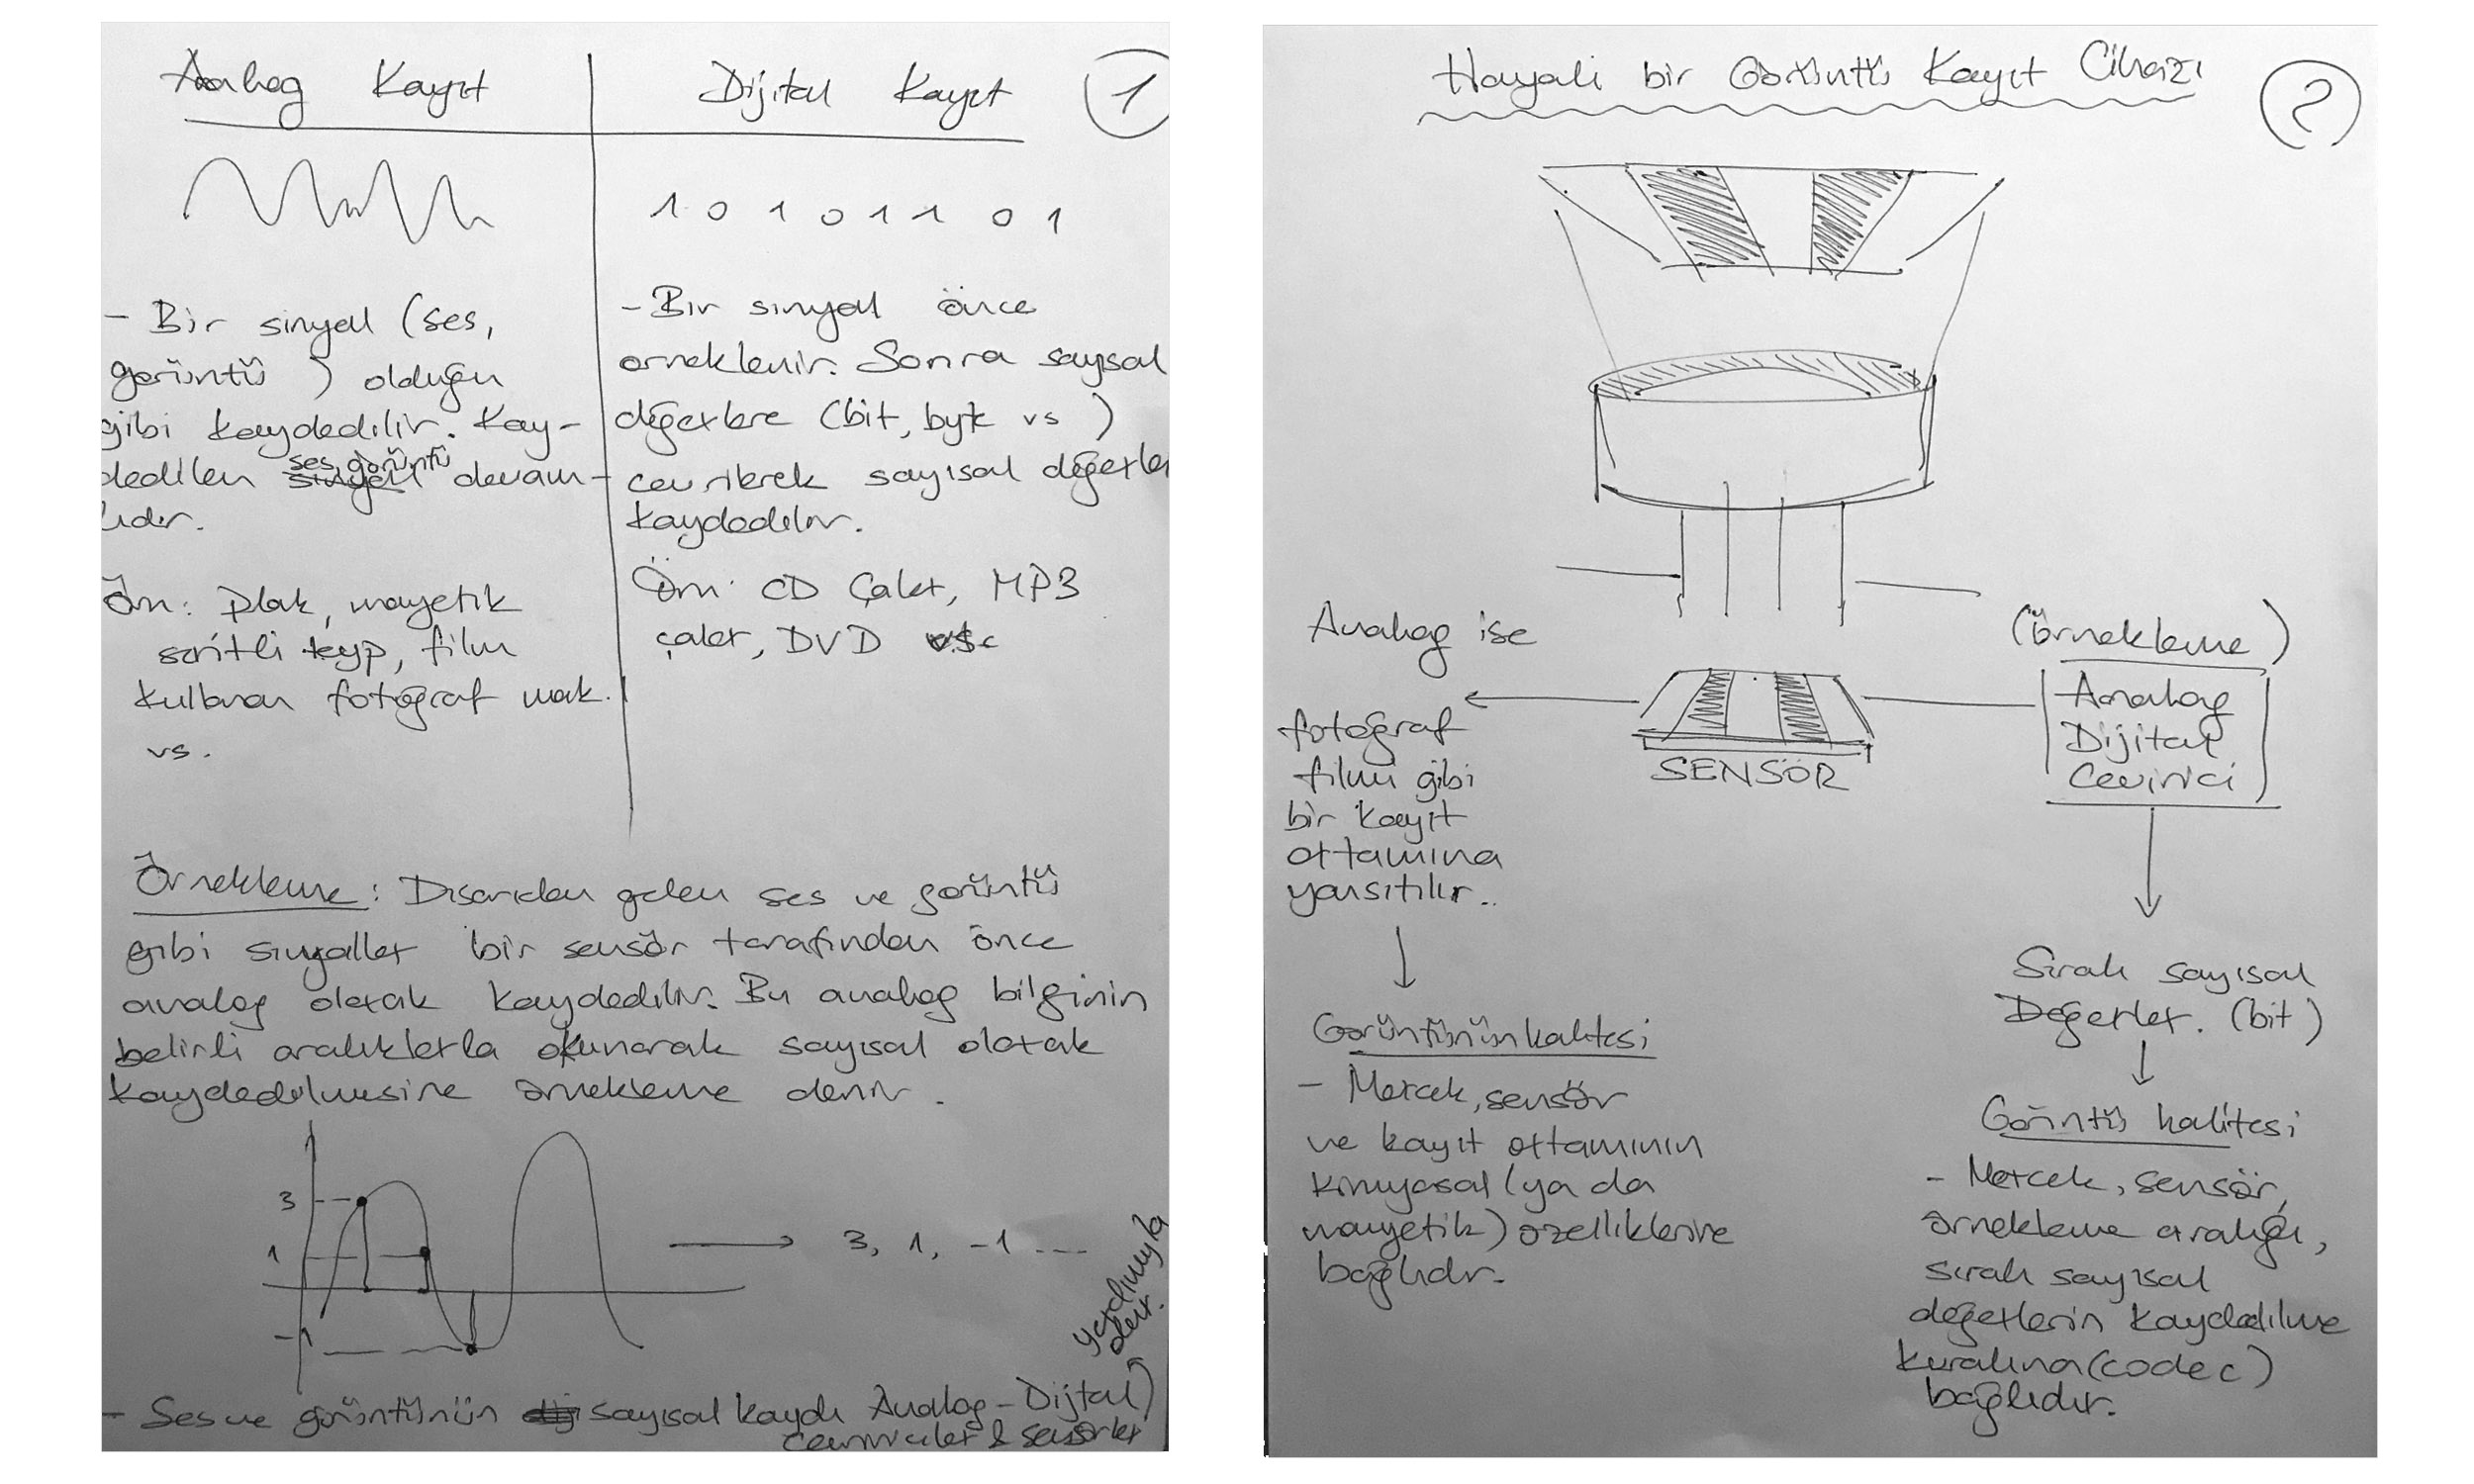 Analog Kayıt
Dijital Kayıt
1
1 0 1 0 1 1 0 1
- Bir sinyal (ses,
görüntü ) olduğu
gibi kaydedilir. Kay-
dedilen ses, görüntü devam-
lıdır.
Örn: Plak, mayetik
şeritli teyp, film
kullanan fotoğraf mak.
vs.
- Bir sinyal önce
örneklenir. Sonra sayısal
değerlere (bit, byte vs )
çevrilerek sayısal değerler
kaydedilir.
Örn: CD Çalar, MP3
çalar, DVD vs.
Örnekleme : Dışarıdan gelen ses ve görüntü
gibi sinyaller bir sensör tarafından önce
analog olarak kaydedilir. Bu analog bilginin
belirli aralıklarla okunarak sayısal olarak
kaydedilmesine örnekleme denir.
3
1
-1
3, 1, -1 ...
- Ses ve görüntünün sayısal kaydı Analog - Dijital
çeviriciler & sensörler
yardımıyla
olur.
Hayali bir Görüntü Kayıt Cihazı
2
Analog ise
fotoğraf
filmi gibi
bir kayıt
ortamına
yansıtılır..
SENSÖR
(örnekleme)
Analog
Dijital
Çevirici
Görüntünün kalitesi
- Mercek, sensör
ve kayıt ortamının
kimyasal (ya da
mayetik) özelliklerine
bağlıdır.
Sıralı sayısal
Değerler. (bit)
Görüntü kalitesi
- Mercek, sensör,
örnekleme aralığı,
sıralı sayısal
değerlerin kaydedilme
kuralına (codec)
bağlıdır.